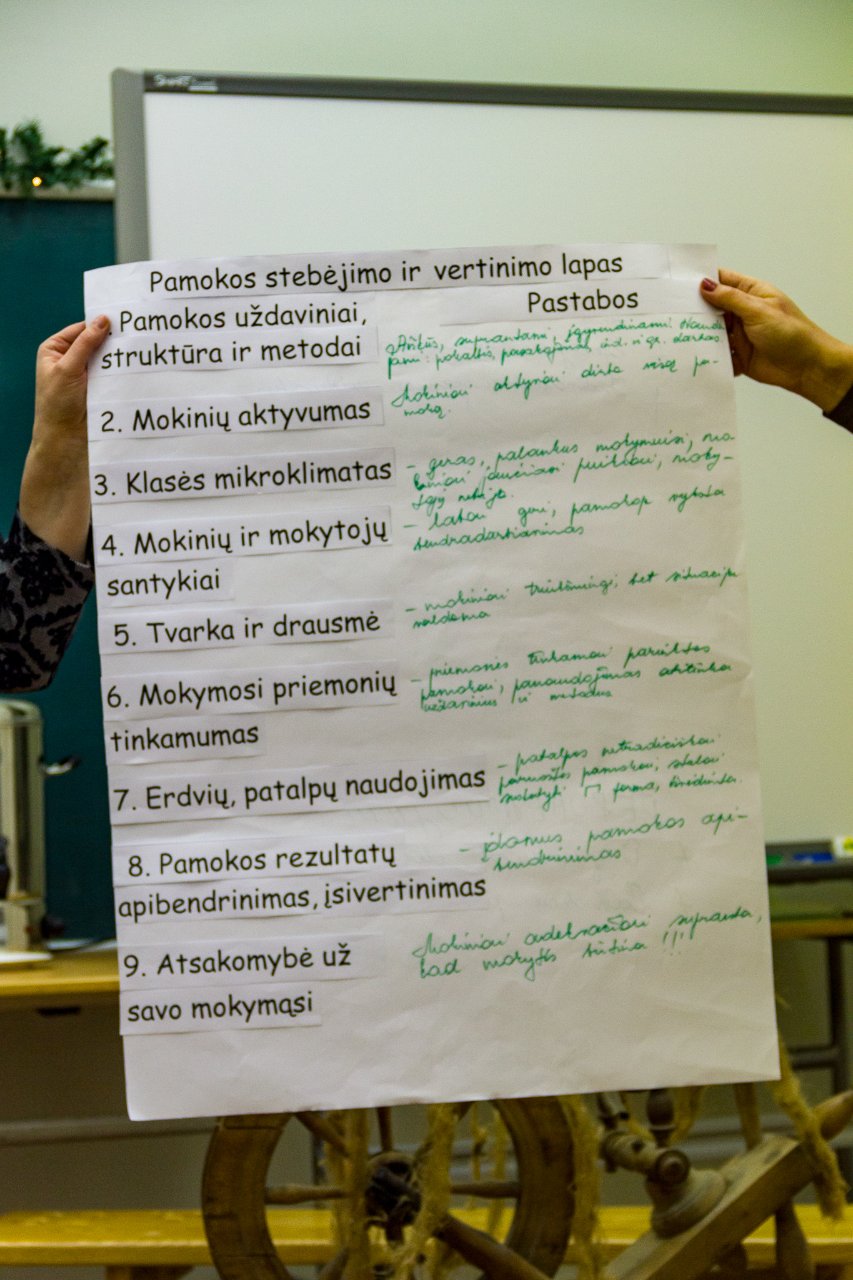 SMART
Pamokos stebėjimo ir vertinimo lapas
Pamokos uždaviniai,
struktūra ir metodai
Pastabos
Aiškūs, suprantami, įgyvendinami. Naudo-
jami: pokalbis, pasakojimas, ind. ir gr. darbas.
2. Mokinių aktyvumas
Mokiniai aktyviai dirba visą pa-
moką.
3. Klasės mikroklimatas
- geras, palankus mokymuisi, mo-
kiniai jaučiasi puikiai, moky-
4. Mokinių ir mokytojų
santykiai
- labai geri, pamokoje vyksta
bendradarbiavimas
5. Tvarka ir drausmė
- mokiniai triukšmingi, bet situacija
valdoma
6. Mokymosi priemonių
tinkamumas
- priemonės tinkamai parinktos
pamokai, panaudojimas atitinka
uždavinius ir metodus
7. Erdvių, patalpų naudojimas
- patalpos netradiciškai
paruoštos pamokai, stalai
sustatyti П forma, išvėdinta.
8. Pamokos rezultatų
apibendrinimas, įsivertinimas
- įdomus pamokos api-
bendrinimas
9. Atsakomybė už
savo mokymąsi
Mokiniai adekvačiai supranta,
kad mokytis būtina !!!